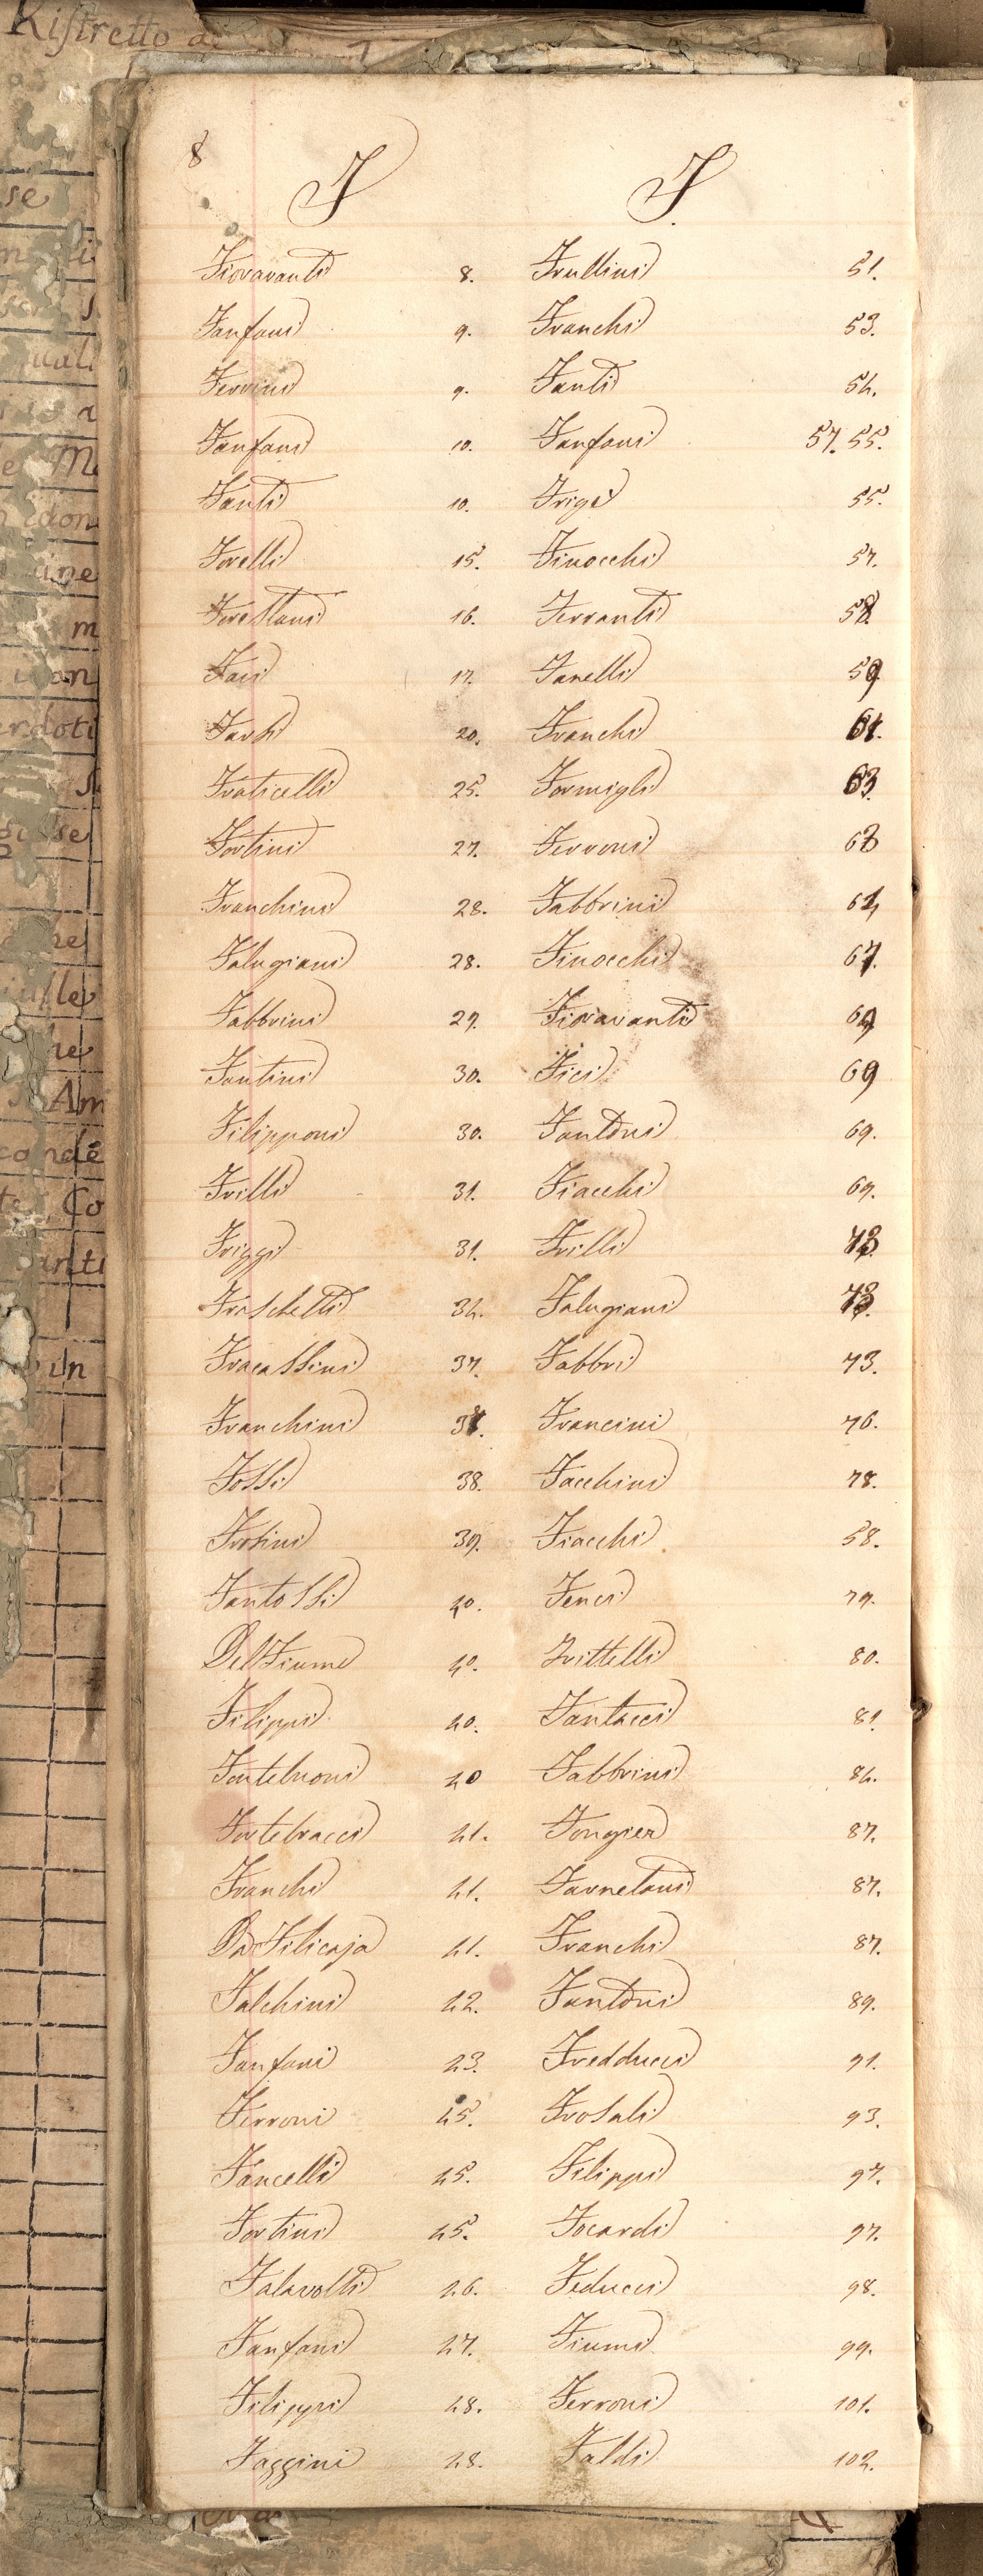 Ristretto d
8
F F
Fioravanti 8. Frullini 51.
Fanfani 9. Franchi 53.
Ferrini 9. Fanti 54.
Fanfani 10. Fanfani 57. 55.
Fanti 10. Frigé 55.
Forelli 15. Finocchi 57.
Forestani 16. Ferranti 58.
Faii 17. Fanelli 59
Farsi 20. Franchi 61.
Fraticelli 25. Formigli 63.
Fortini 27. Ferroni 63
Franchini 28. Fabbrini 64
Falugiani 28. Finocchi 67.
Fabbrini 29. Fioravanti 69
Fantini 30. Fici 69
Filipponi 30. Fantoni 69.
Frilli 31. Fiacchi 69.
Friggi 31. Frilli 73.
Fraschetti 34. Falugiani 73.
Fracassini 37. Fabbri 73.
Franchini 38. Francini 76.
Fossi 38. Facchini 78.
Frosini 39. Fiacchi 58.
Fantossi 40. Fenci 79.
Del Fiume 40. Frittelli 80.
Filippi 40. Fantacci 81.
Fontebuoni 40 Fabbrini 84.
Fortebracci 41. Fongier 87.
Franchi 41. Farnetani 87.
Da Filicaja 41. Franchi 87.
Falchini 42. Fantoni 89.
Fanfani 43. Fredducci 91.
Ferroni 45. Frosali 93.
Fancelli 45. Filippi 97.
Fortini 45. Focardi 97.
Falavolti 46. Feducci 98.
Fanfani 47. Fiumi 99.
Filippi 48. Ferroni 101.
Faggini 48. Faldi 102.